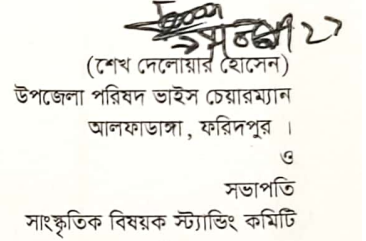 (শেখ দেলোয়ার হোসেন)
উপজেলা পরিষদ ভাইস চেয়ারম্যান
আলফাডাঙ্গা, ফরিদপুর ।
ও
সভাপতি
সাংস্কৃতিক বিষয়ক স্ট্যান্ডিং কমিটি